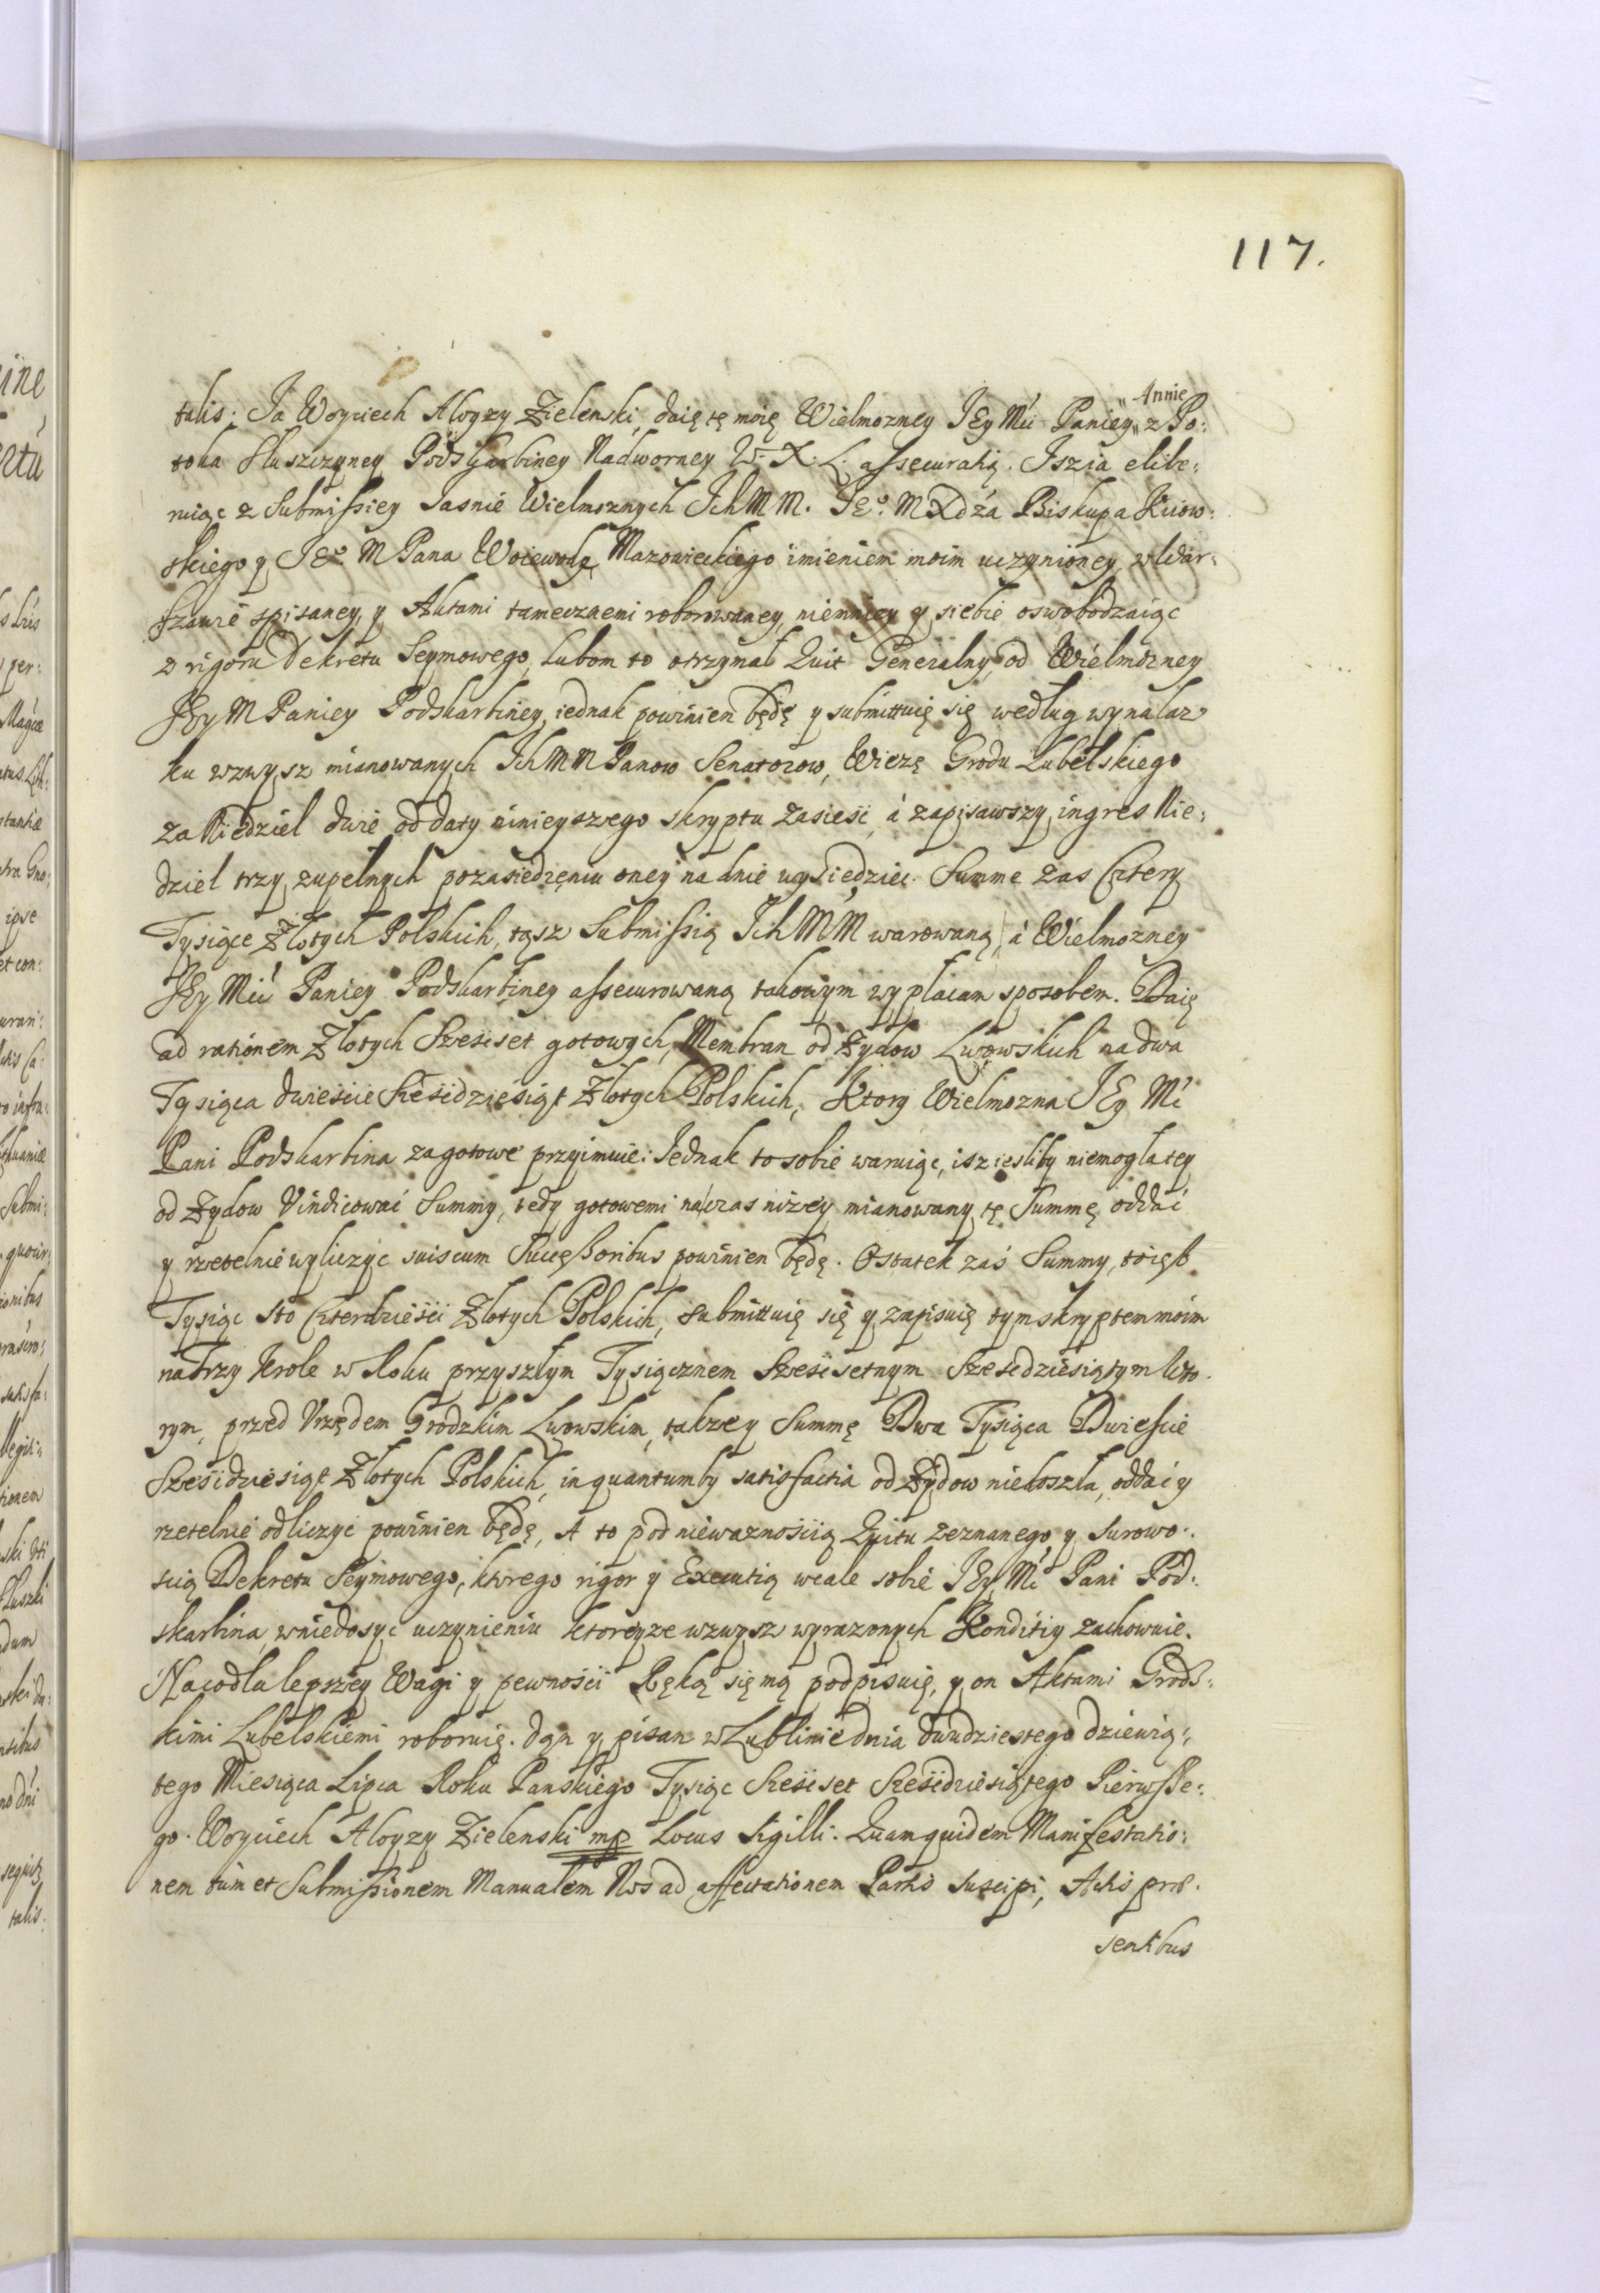 117.
Annie
talis: Ja Woyciech Aloyzy Zielenski, daię tę moię Wielmozney JEy Mći Paniey z Po:
toka Sluszczyney Podskarbiney Nadworney W. X. L. assecuratią. Iszia elibe:
ruiąc z Submissiey Jasnie Wielmoznych IchMM. JEo. MXdźa Biskupa Kiiow:
skiego y JEo. M Pana Woiewodę Mazowieckiego imieniem moim uczynioney, w War:
szawie spisaney, y Aktami tamecznemi roborowaney, niemniey y siebie oswobodzaiąc
z rigoru Dekretu Seymowego, lubom to otrzymał Quit Generalny, od Wielmozney
JEy M Paniey Podskarbiney, iednak powinien będę y submittuię się według wynalaz
ku wzwysz mianowanych IchMM Panow Senatorow, Wiezę Grodu Lubelskiego
za Niedziel dwie od daty ninieyszego skryptu zasiesć, á zapisawszy ingres Nie:
dziel trzy zupełnych pozasiedzęniu oney na dnie wysiedziec. Summe zas Cztery
Tysiące Złotych Polskich, tąsz Submissią IchMM warowaną, á Wielmozney
JEy Mći Paniey Podskarbiney assecurowaną takowym wypłacam sposobem. Daię
ad rationem Złotych Szesćset gotowych, Membran od Zydow Lwowskich na dwa
Tysiąca dwiescie Szesćdziesiąt Złotych Polskich, Ktory Wielmozna JEy Mć
Pani Podskarbina zagotowe przyimuie: Jednak to sobie waruiąc, isz iesliby niemogła tey
od Zydow Vindicować Summy, tedy gotowemi naczas nizey mianowany tę Summę oddać
y rzetelnie wyliczyc suis cum Successoribus powinien będę. Ostatek zaś Summy, to iest
Tysiąc Sto Czterdziesci Złotych Polskich, submittuię się y zapisuię tym skryptem moim
na Trzy Krole w Roku przyszłym Tysiącznem Szescsetnym Szescdziesiątym Wto.
rym, przed Urzędem Grodzkim Lwowskim, takzey Summę Dwa Tysiąca Dwiescie
Szescdziesiąt Złotych Polskich, in quantumby satisfactia od Zydow niedoszła, oddać y
rzetelnie odliczyć powinien będę, A to pod niewaznoscią Quitu zeznanego, y surowo:
scią Dekretu Seymowego, ktorego rigor y Executią wcale sobie JEy Mć Pani Pod:
skarbina, wniedosyc uczynieniu ktoreyze wzwysz wyrazonych Konditiy zachowuie.
Nacodla lepszey Wagi y pewnosci Ręką się mą podpisuię, y on Aktami Grodz:
kimi Lubelskiemi roboruię. Dan y pisan w Lublinie dnia dwudziestego dziewią:
tego Miesiąca Lipca Roku Panskiego Tysiąc Szescset Szescdziesiątego Pierwsze:
go. Woyciech Aloyzy Zielenski mp Locus Sigilli. Quam quidem Manifestatio:
nem tum et Submissionem Manualem Nos ad affectationem Partis suscipi, Actis præ.
sentibus